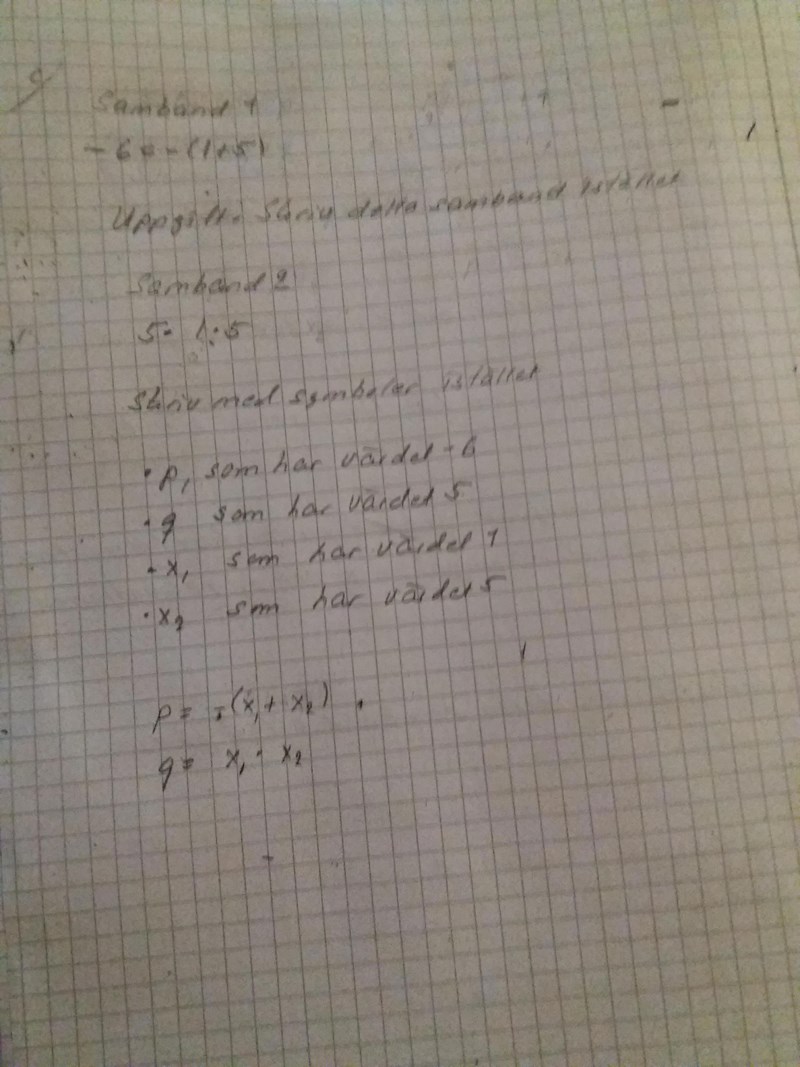 Samband 1
- 6 = - (1+5)
Uppgift: Skriv detta samband istället
Samband 2
5 = 1 · 5
Skriv med symboler istället
· p, som har värdet -6
· q som har värdet 5
· x₁ som har värdet 1
· x₂ som har värdet 5
p = -(x₁ + x₂)
q = x₁ · x₂